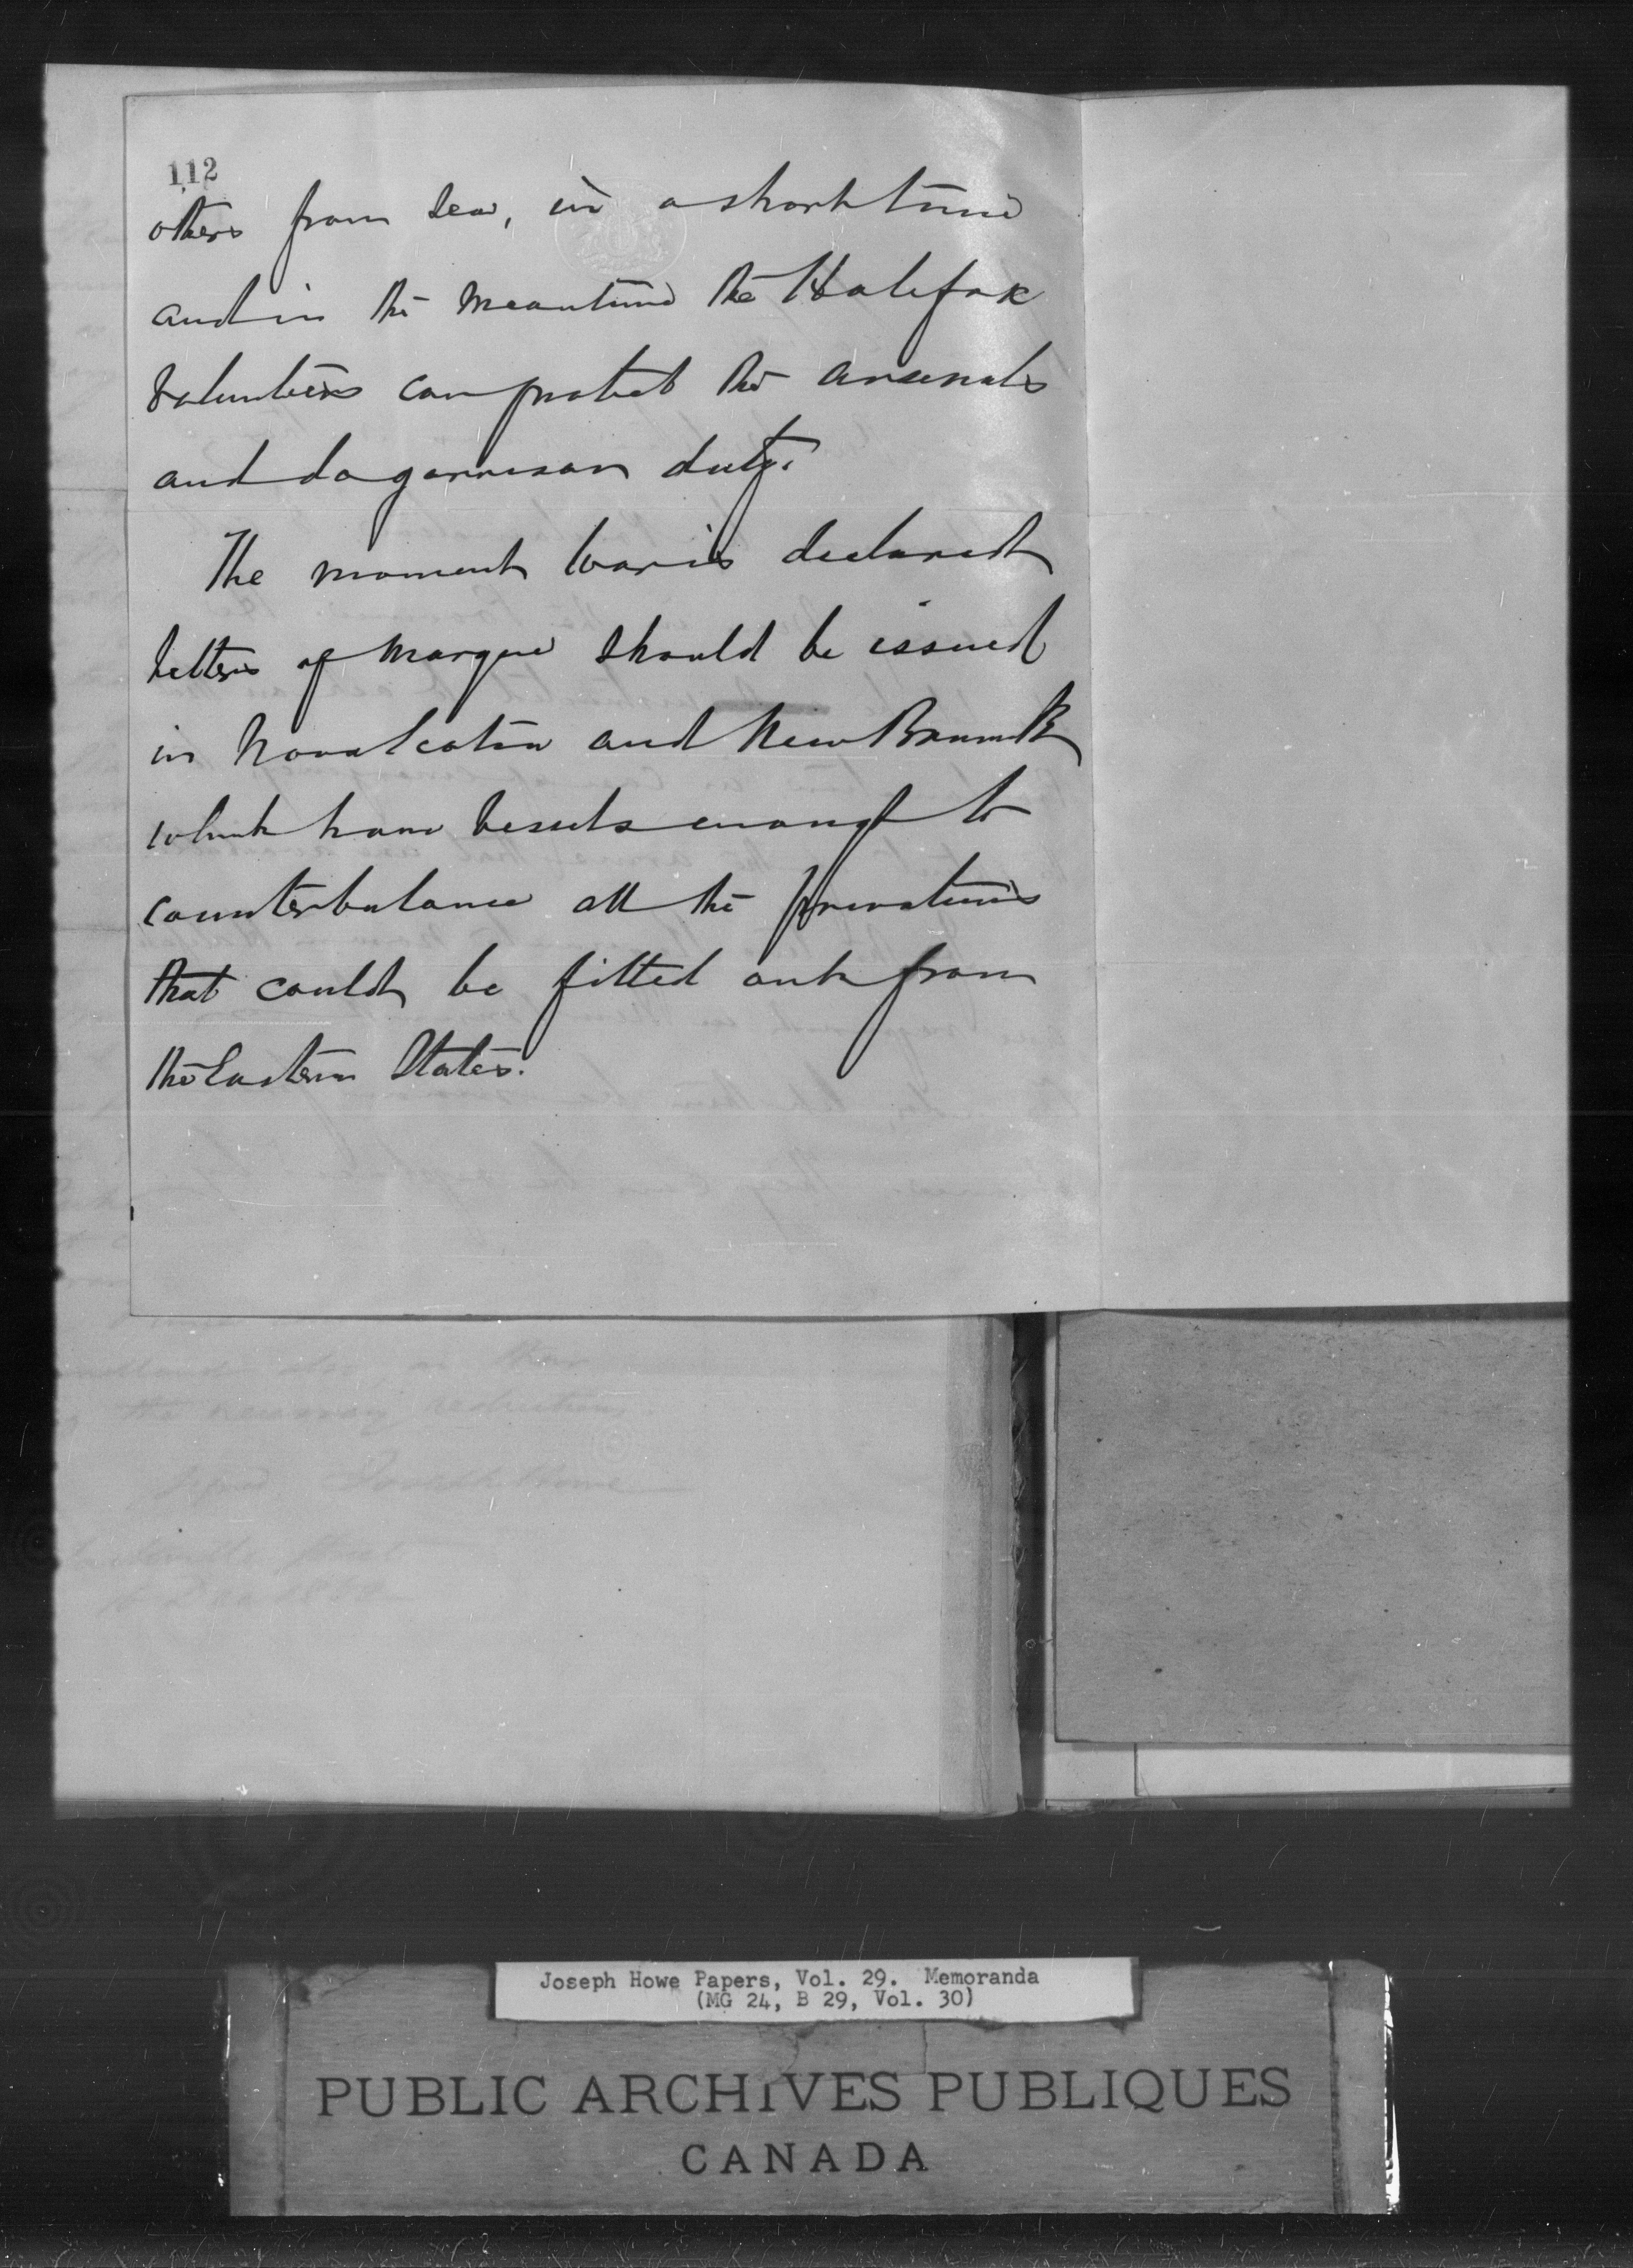 112
others from sea, in a short time
and in the meantime the Halifax
volunteers can protect the arsenals
and do garrison duty.
The moment war is declared
letters of marque should be issued
in Nova Scotia and New Brunswk
which have vessels enough to
counterbalance all the privateers
that could be fitted out from
the Eastern States.
the necessary reductions.
Joseph Howe
Joseph Howe Papers, Vol. 29. Memoranda
(MG 24, B 29, Vol. 30)
PUBLIC ARCHIVES PUBLIQUES
CANADA